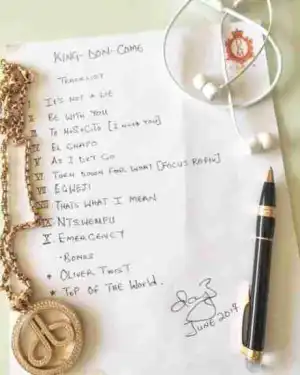 KING-DON-COME
TRACKLIST
I IT'S NOT A LIE
II BE WITH YOU
III TE NECESITO [I NEED YOU]
IV EL CHAPO
V AS I DEY GO
VI TURN DOWN FOR WHAT [FOCUS RAMON]
VII EGWEJI
VIII THATS WHAT I MEAN
IX NTSWEMPU
X EMERGENCY
- BONUS
* OLIVER TWIST
* TOP OF THE WORLD.
JUNE 2017